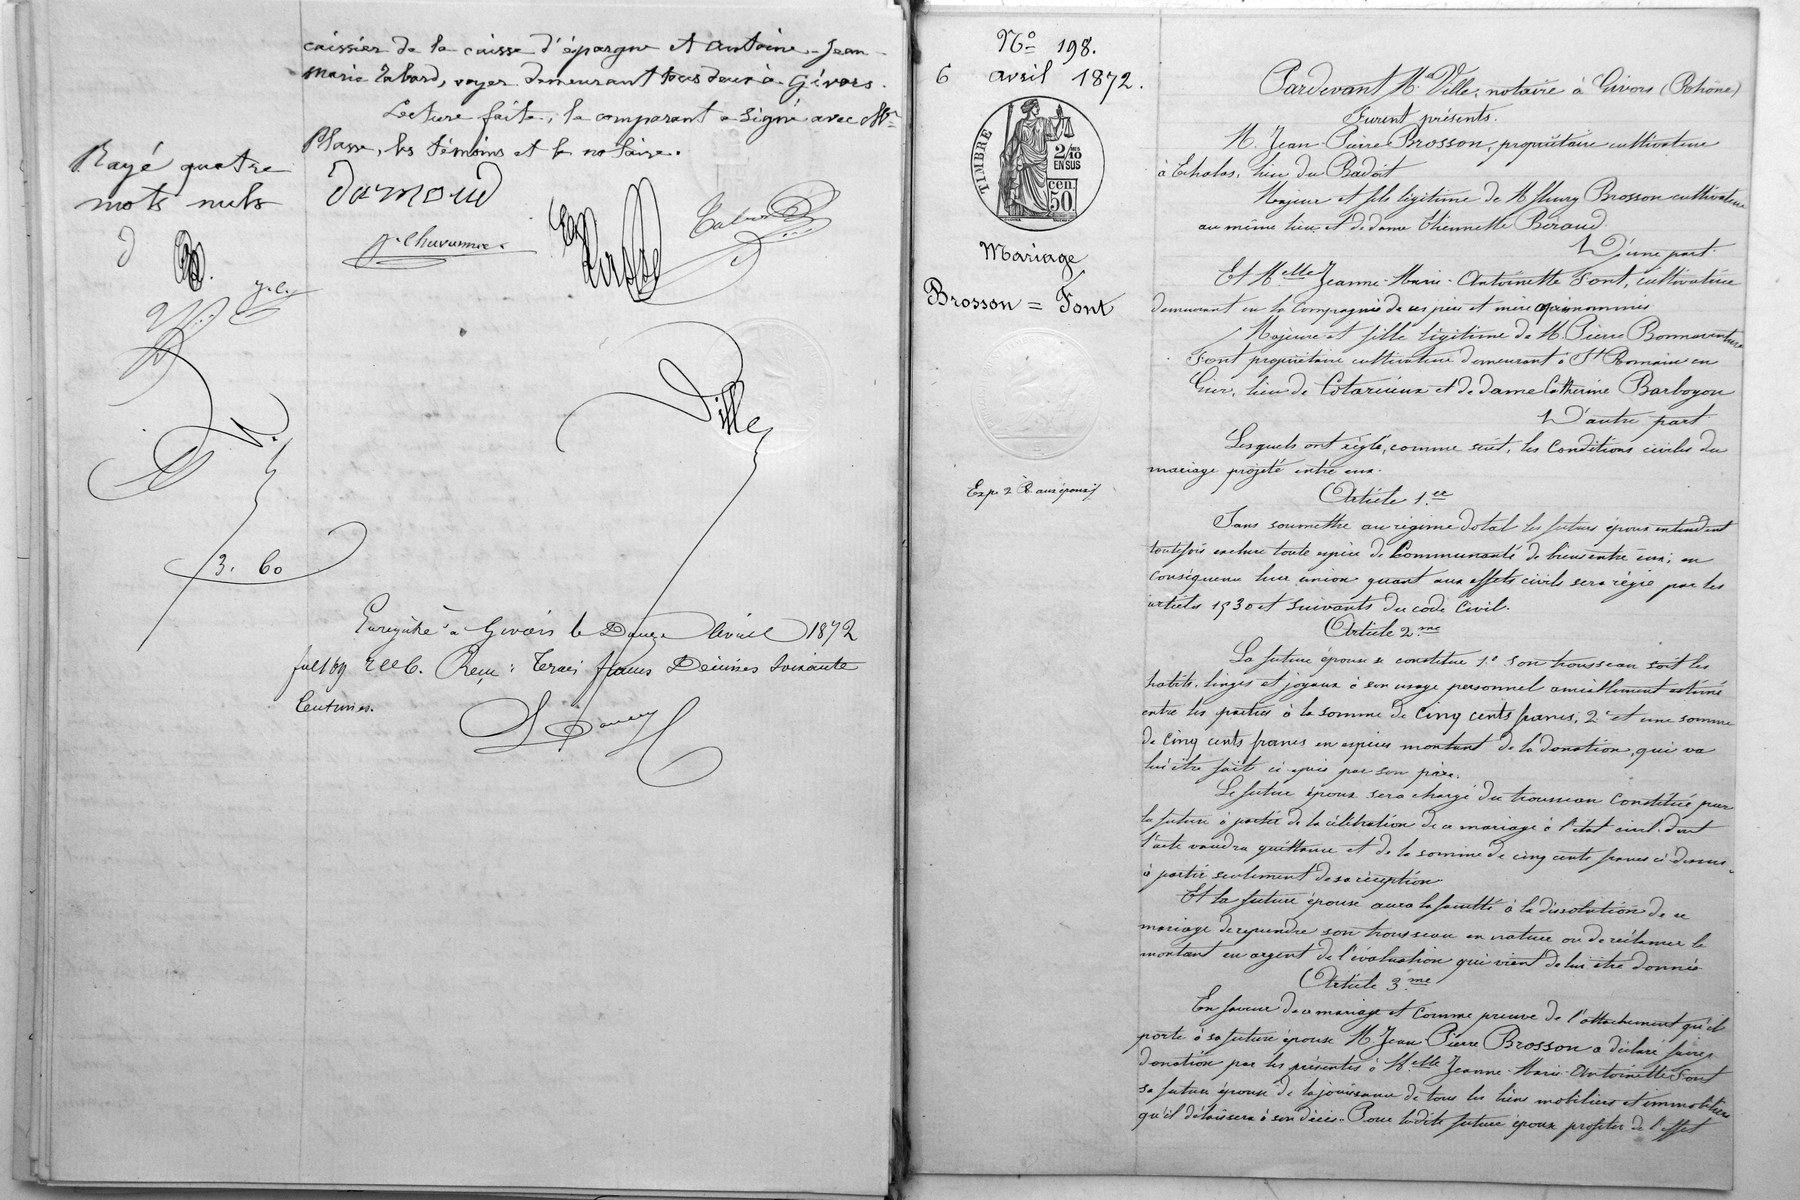 caissier de la caisse d'épargne et Antoine-Jean-
Marie Tabard, voyer demeurant tous deux à Givors.
Lecture faite, le comparant a signé avec Mr
Plasse, les témoins et le notaire.
Rayé quatre
mots nuls
Damoud
Chavanne
Plasse
Tabard
Ville
3. 60
Enregistré à Givors le Douze Avril 1872
Reçu : Trois francs Décimes soixante
Centimes.
No 198.
6 avril 1872.
TIMBRE
2/10 EN SUS
50 cen.
Mariage
Brosson = Font
Exp. 2 R. aux époux
Pardevant Me Ville, notaire à Givors (Rhône)
Furent présents.
M. Jean-Pierre Brosson, propriétaire cultivateur
à Echalas, lieu du Badoit
Majeur et fils légitime de M. fleury Brosson cultivateur
au même lieu, et de dame Etiennette Béraud.
D'une part.
Et Melle Jeanne-Marie-Antoinette Font, cultivatrice
demeurant en la Compagnie de ses père et mère ci-après nommés
Majeure et fille légitime de M. Pierre Bonnaventure
Font propriétaire cultivateur demeurant à St Romain en
Gier, lieu de Cotarieux et de dame Catherine Barboyon
D'autre part
Lesquels ont réglé, comme suit, les Conditions civiles du
mariage projeté entre eux.
Article 1er
Sans soumettre au régime dotal les futurs époux entendent
toutefois exclure toute espèce de Communauté de biens entre eux; en
conséquence leur union quant aux effets civils sera régie par les
articles 1530 et suivants du code Civil.
Article 2me
La future épouse se constitue 1° son trousseau soit les
habits, linges et joyaux à son usage personnel amiablement estimé
entre les parties à la somme de Cinq cents francs; 2° et une somme
de Cinq cents francs en espèces montant de la donation qui va
lui être fait ci-après par son père.
Le futur époux sera chargé du trousseau Constitué par
la future à partir de la célébration de ce mariage à l'état civil dont
l'acte vaudra quittance et de la somme de cinq cents francs ci-dessus
à partir seulement de sa réception.
Et la future épouse aura la faculté à la dissolution de ce
mariage de reprendre son trousseau en nature ou de réclamer le
montant en argent de l'évaluation qui vient de lui être donnée
Article 3me
En faveur de ce mariage et comme preuve de l'attachement qu'il
porte à sa future épouse M. Jean Pierre Brosson a déclaré faire
donation par les présentes à Melle Jeanne-Marie-Antoinette Font
sa future épouse de la jouissance de tous les biens mobiliers et immobiliers
qu'il délaissera à son décès. Pour ladite future épouse profiter de l'effet